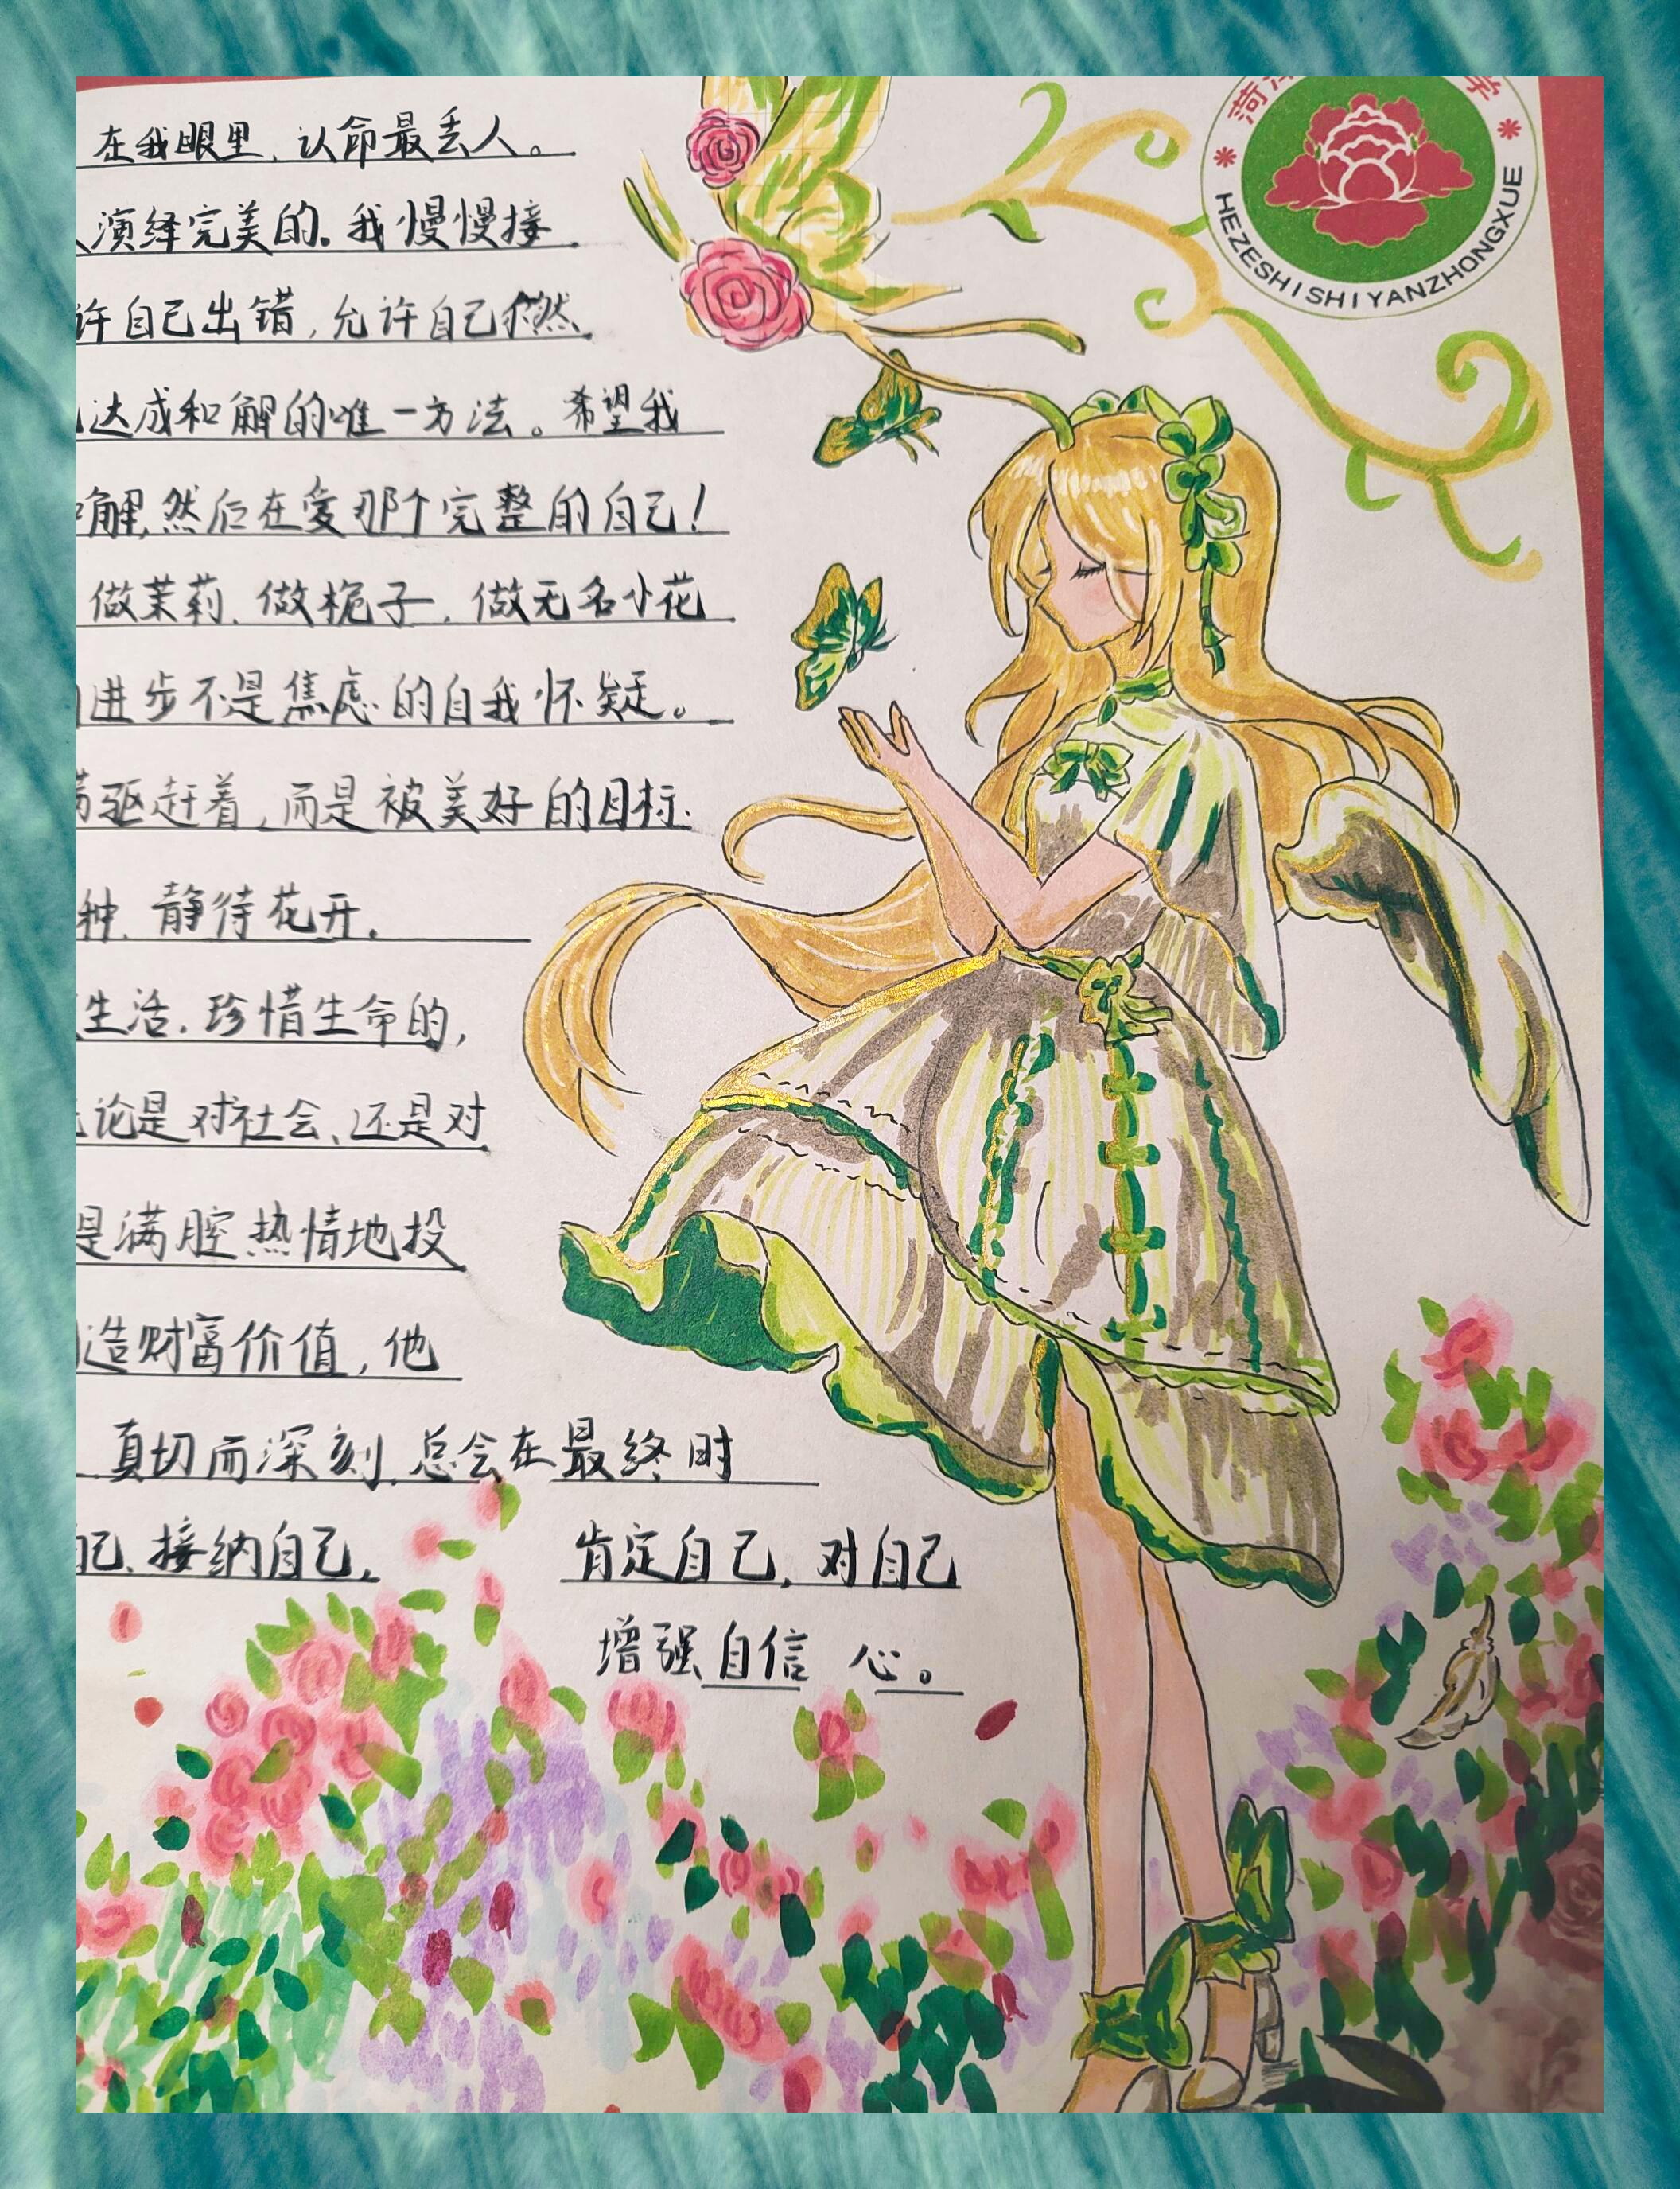 在我眼里,认命最丢人。
演绎完美的。我慢慢接
许自己出错,允许自己
达成和解的唯一方法。希望我
解,然后在爱那个完整的自己!
做茉莉、做栀子、做无名小花
进步不是焦虑的自我怀疑。
驱赶着,而是被美好的目标
种、静待花开.
生活.珍惜生命的,
论是对社会、还是对
是满腔热情地投
造财富价值,他
真切而深刻,总会在最终时
己、接纳自己,
肯定自己,对自己
增强自信 心。
菏 学
HEZESHISHIYANZHONGXUE